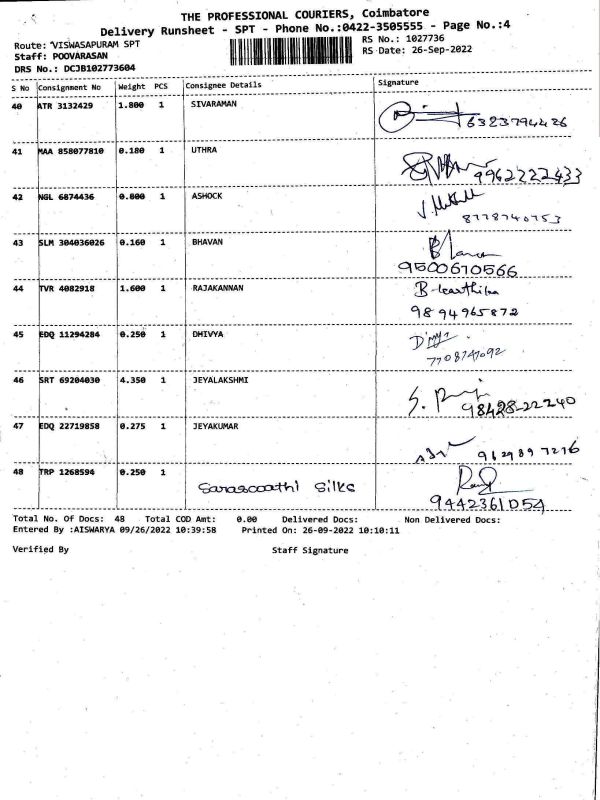 THE PROFESSIONAL COURIERS, Coimbatore
Delivery Runsheet - SPT - Phone No.:0422-3505555 - Page No.:4
Route: VISWASAPURAM SPT RS No.: 1027736
Staff: POOVARASAN RS Date: 26-Sep-2022
DRS No.: DCJB102773604
S No Consignment No Weight PCS Consignee Details Signature
40 ATR 3132429 1.800 1 SIVARAMAN
6323794426
41 MAA 858077810 0.180 1 UTHRA
9962222433
42 NGL 6874436 0.800 1 ASHOCK
8778740753
43 SLM 304036026 0.160 1 BHAVAN
9500670566
44 TVR 4082918 1.600 1 RAJAKANNAN B-karthika
9894965872
45 EDQ 11294284 0.250 1 DHIVYA
7708747092
46 SRT 69204030 4.350 1 JEYALAKSHMI
98428-22240
47 EDQ 22719858 0.275 1 JEYAKUMAR
9629897276
48 TRP 1268594 0.250 1
Saraswathi Silks
9442361054
Total No. Of Docs: 48 Total COD Amt: 0.00 Delivered Docs: Non Delivered Docs:
Entered By :AISWARYA 09/26/2022 10:39:58 Printed On: 26-09-2022 10:10:11
Verified By Staff Signature